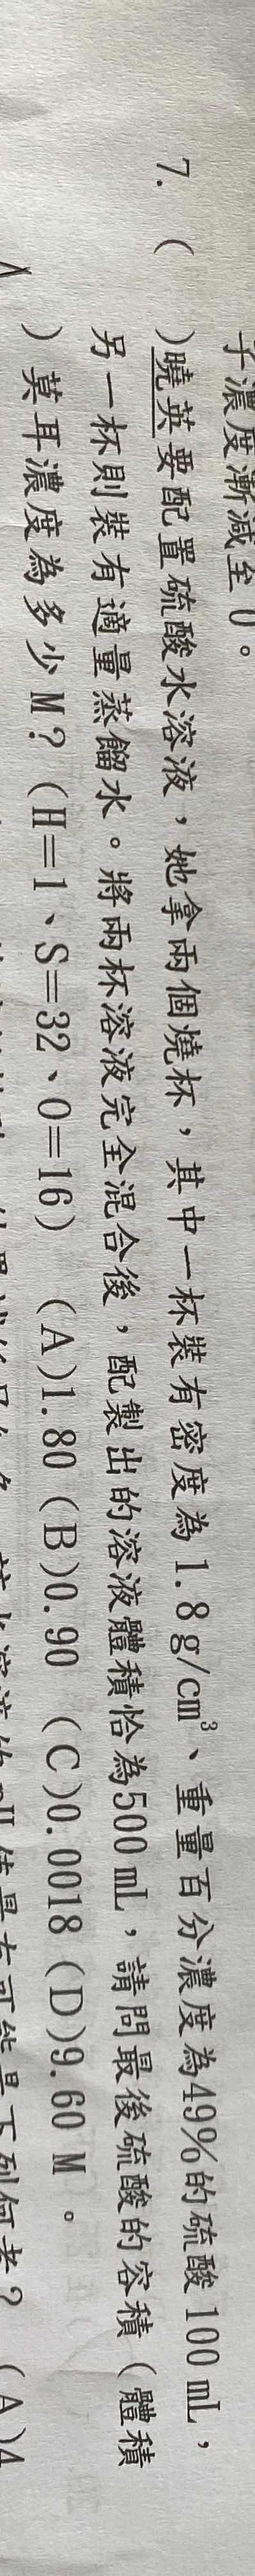 子濃度漸減至 0。
7. (　)曉英要配置硫酸水溶液，她拿兩個燒杯，其中一杯裝有密度為 1.8 g/cm³、重量百分濃度為49%的硫酸 100 mL，
另一杯則裝有適量蒸餾水。將兩杯溶液完全混合後，配製出的溶液體積恰為500 mL，請問最後硫酸的容積（體積
）莫耳濃度為多少M？（H＝1、S＝32、O＝16） (A)1.80 (B)0.90 (C)0.0018 (D)9.60 M 。
值最有可能是下列何者？ (A)4